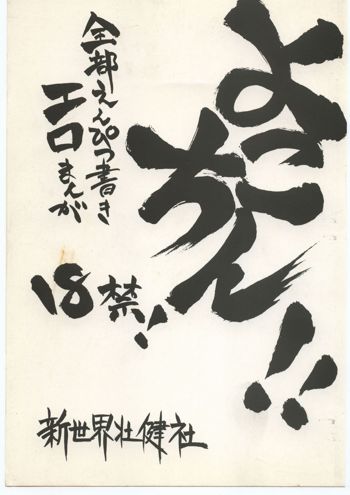 よっ
ちん!!
全部えんぴつ書き
エロまんが
18禁!
新世界壮健社